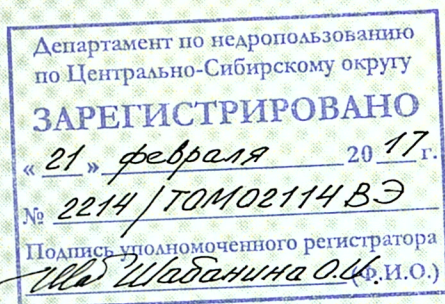 Департамент по недропользованию
по Центрально-Сибирскому округу
ЗАРЕГИСТРИРОВАНО
« 21 » февраля 2017 г.
№ 2214/ТОМ02114ВЭ
Подпись уполномоченного регистратора
Шабанина О.И. (Ф.И.О.)